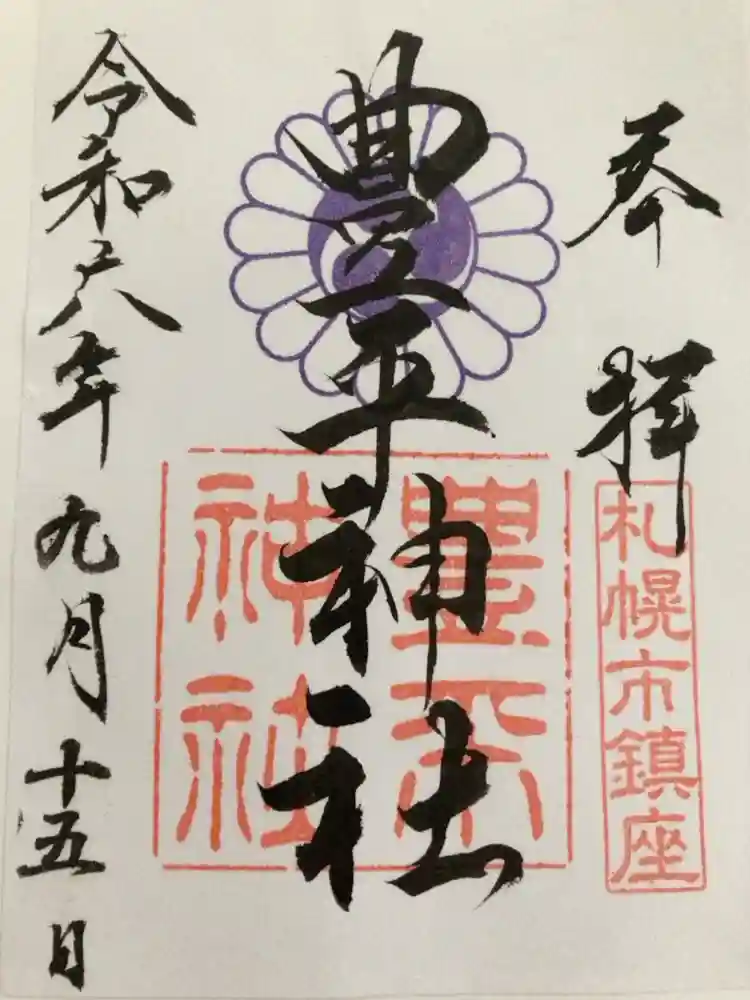 奉拝
札幌市鎮座
豊平神社
豊平神社
令和六年九月十五日